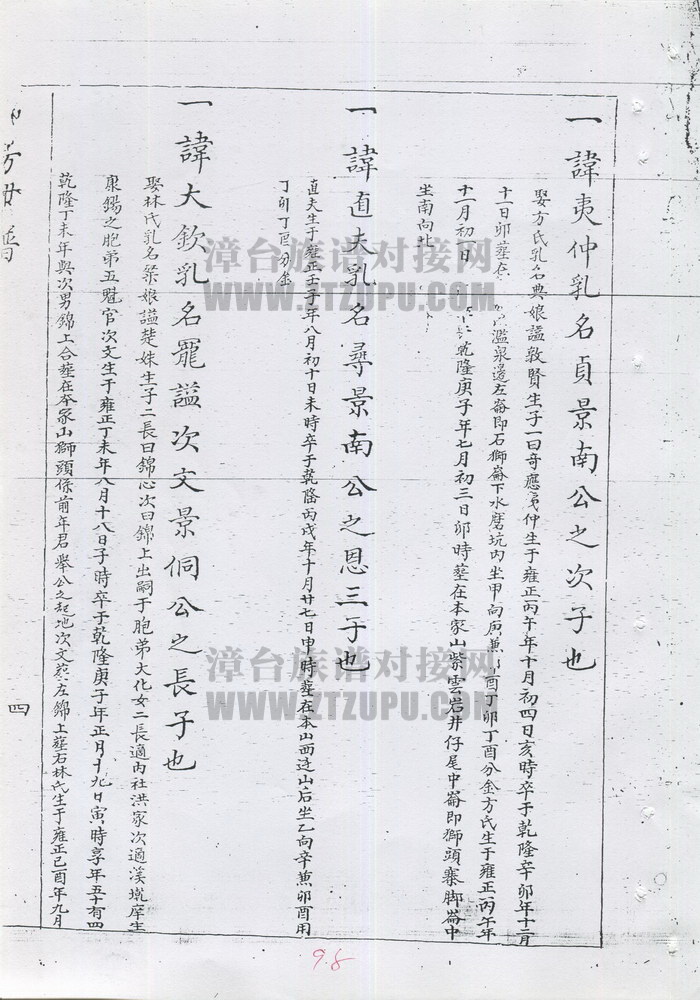 一諱夷仲乳名貞景南公之次子也
娶方氏乳名典娘謚敦賢生子一曰奇應夷仲生于雍正丙午年十月初四日亥時卒于乾隆辛卯年十二月
十一日卯葬在 濫泉邊左崙即石獅崙下水磨坑內坐甲向庚兼卯酉丁卯丁酉分金方氏生于雍正丙午年
十一月初日 乾隆庚子年七月初三日卯時葬在本家山紫雲岩井仔尾中崙即獅頭寨脚崙中
坐南向北
一諱直夫乳名尋景南公之恩三子也
直夫生于雍正壬子年八月初十日未時卒于乾隆丙戌年十月廿七日申時葬在本山西边山后坐乙向辛兼卯酉用
丁卯丁酉分金
一諱大欽乳名罷謚次文景侗公之長子也
娶林氏乳名榮娘謚楚姝生子二長曰錦心次曰錦上出嗣于胞弟大化女二長適內社洪家次適溪墘庠生
康錫之胞弟五魁官次文生于雍正丁未年八月十八日子時卒于乾隆庚子年正月十九日寅時享年五十有四
乾隆丁未年與次男錦上合葬在本家山獅頭保前年君舉公之起地次文葬左錦上葬右林氏生于雍正己酉年九月
四
98
漳台族谱对接网
WWW.ZTZUPU.COM
漳台族谱对接网
WWW.ZTZUPU.COM